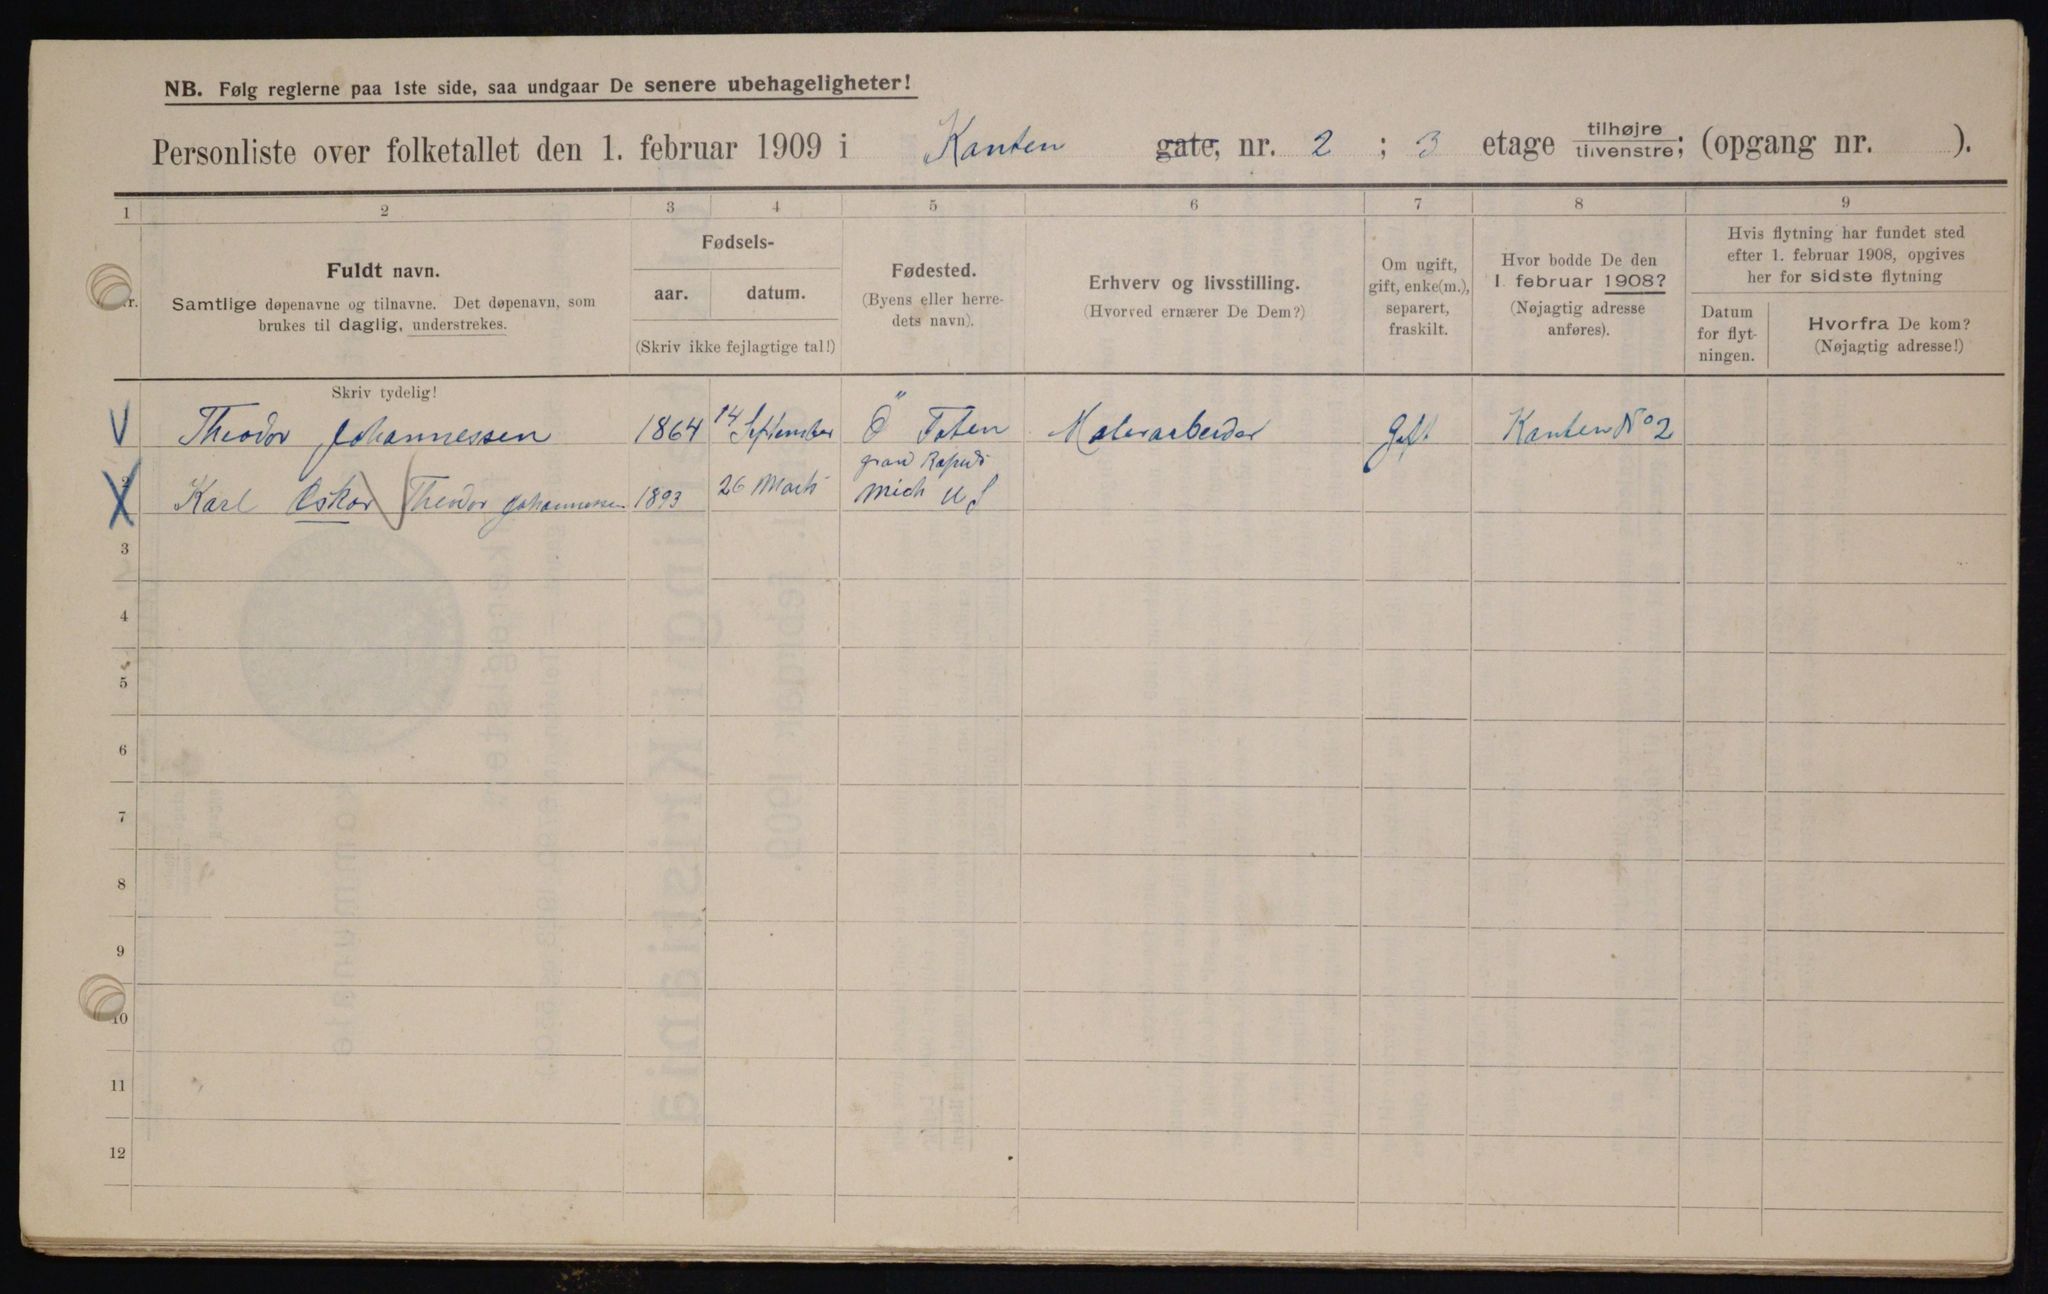 NB. Følg reglerne paa 1ste side, saa undgaar De senere ubehageligheter!
Personliste over folketallet den 1. februar 1909 i Kanten gate, nr. 2 ; 3 etage tilhøjre tilvenstre; (opgang nr. ).
1 2 3 4 5 6 7 8 9
Nr.
Fuldt navn.
Samtlige døpenavne og tilnavne. Det døpenavn, som
brukes til daglig, understrekes.
Fødsels-
aar. datum.
(Skriv ikke fejlagtige tal!)
Fødested.
(Byens eller herre-
dets navn).
Erhverv og livsstilling.
(Hvorved ernærer De Dem?)
Om ugift,
gift, enke(m.),
separert,
fraskilt.
Hvor bodde De den
1. februar 1908?
(Nøjagtig adresse
anføres).
Hvis flytning har fundet sted
efter 1. februar 1908, opgives
her for sidste flytning
Datum
for flyt-
ningen.
Hvorfra De kom?
(Nøjagtig adresse!)
Skriv tydelig!
Theodor Johannessen 1864 14 September Ö Toten Malerarbeider Gift Kanten No 2
Karl Oskar Theodor Johannessen 1893 26 Marts grand Rapids
Mich U S
3
4
5
6
7
8
9
10
11
12